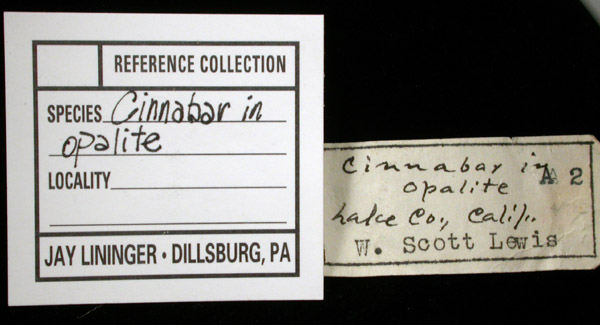 REFERENCE COLLECTION
SPECIES Cinnabar in
opalite
LOCALITY
JAY LININGER • DILLSBURG, PA
Cinnabar in A 2
opalite
Lake Co., Calif.
W. Scott Lewis